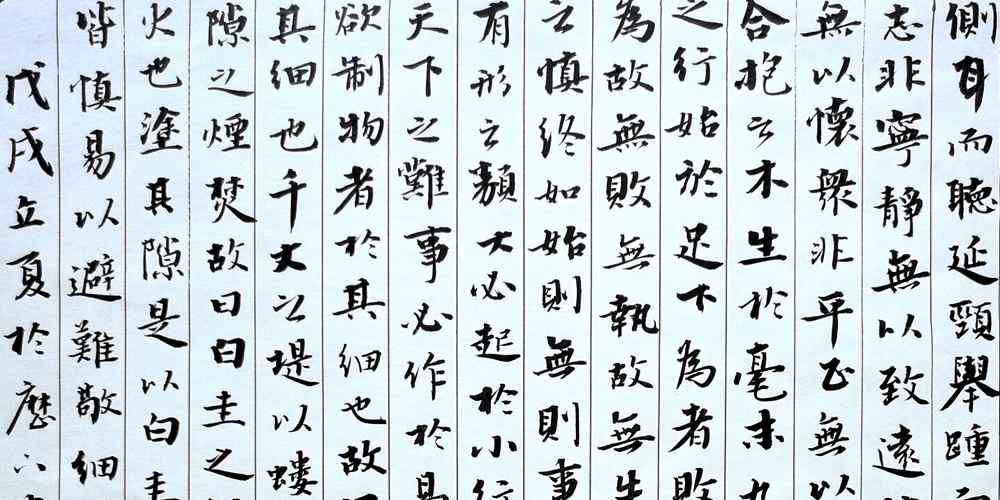 側耳而聽延頸舉踵而
志非寧靜無以致遠
無以懷眾非平正無以
合抱之木生於毫末九
之行始於足下為者敗
為故無敗無執故無失
云慎終如始則無敗事
有形之類大必起於小行
天下之難事必作於易
欲制物者於其細也故曰
其細也千丈之堤以螻
隙之煙焚故曰白圭之
火也塗其隙是以白圭
皆慎易以避難敬細
戊戌立夏於歷下